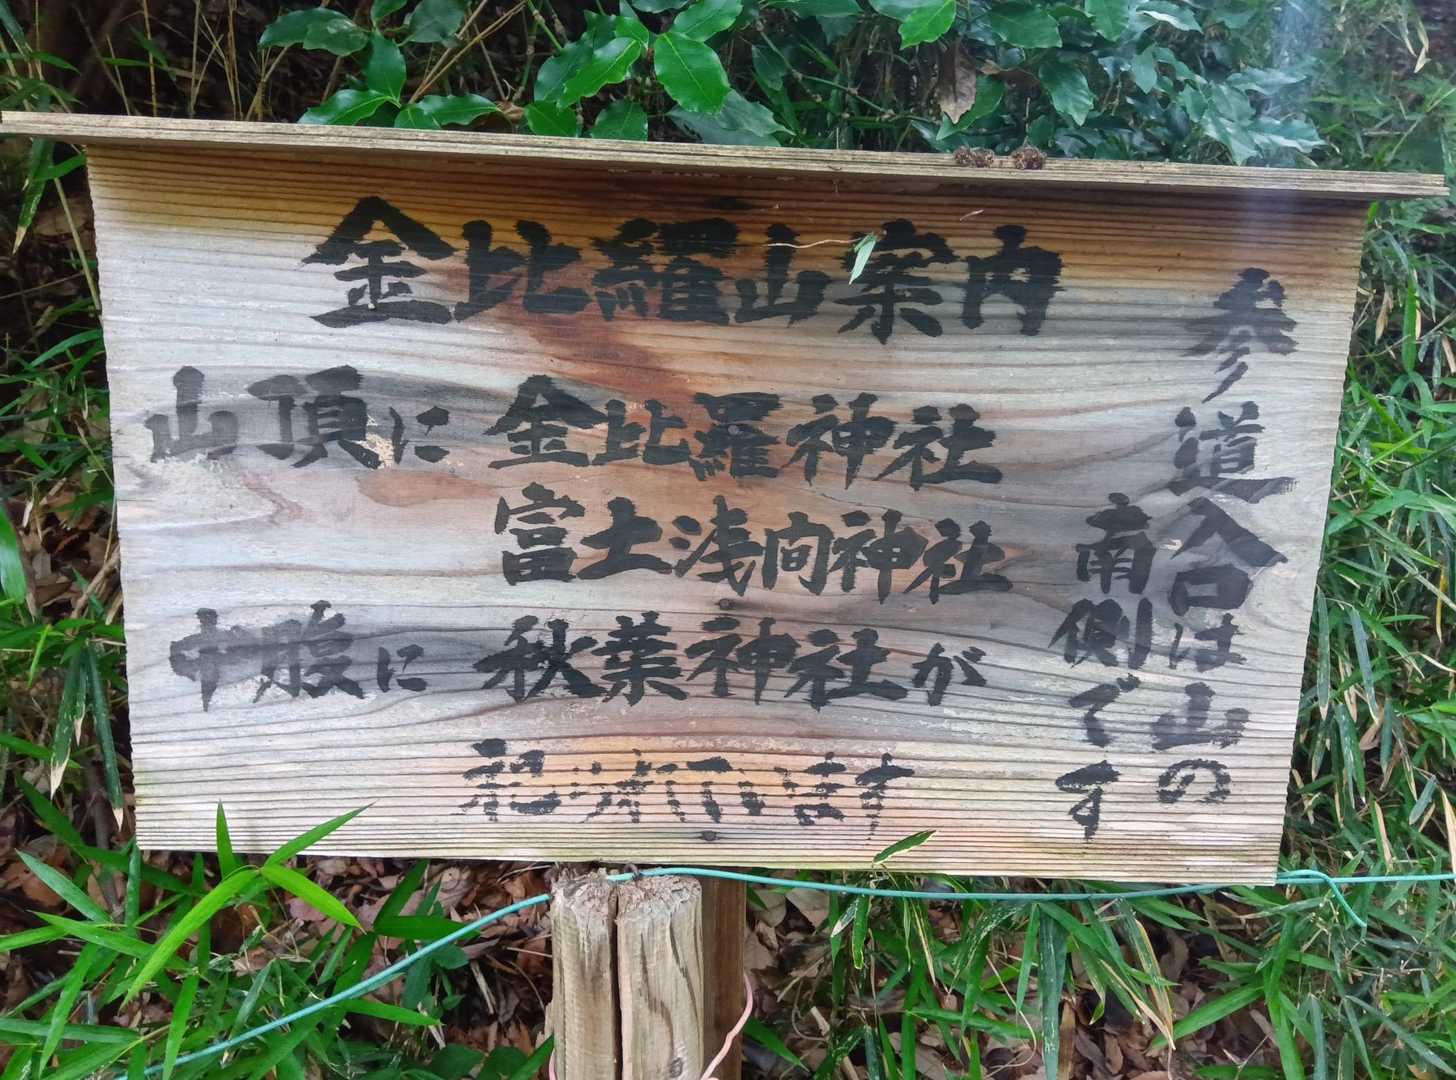 金比羅山案内
山頂に 金比羅神社
富士浅間神社
中腹に 秋葉神社が
祀られています
参道入口は山の
南側です